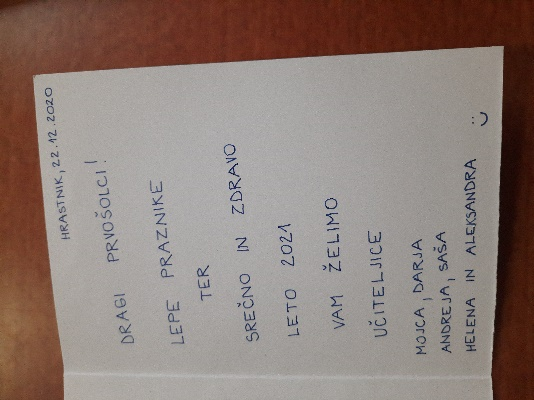 HRASTNIK, 22.12.2020
DRAGI PRVOŠOLCI!
LEPE PRAZNIKE
TER
SREČNO IN ZDRAVO
LETO 2021
VAM ŽELIMO
UČITELJICE
MOJCA, DARJA
ANDREJA, SAŠA
HELENA IN ALEKSANDRA :)